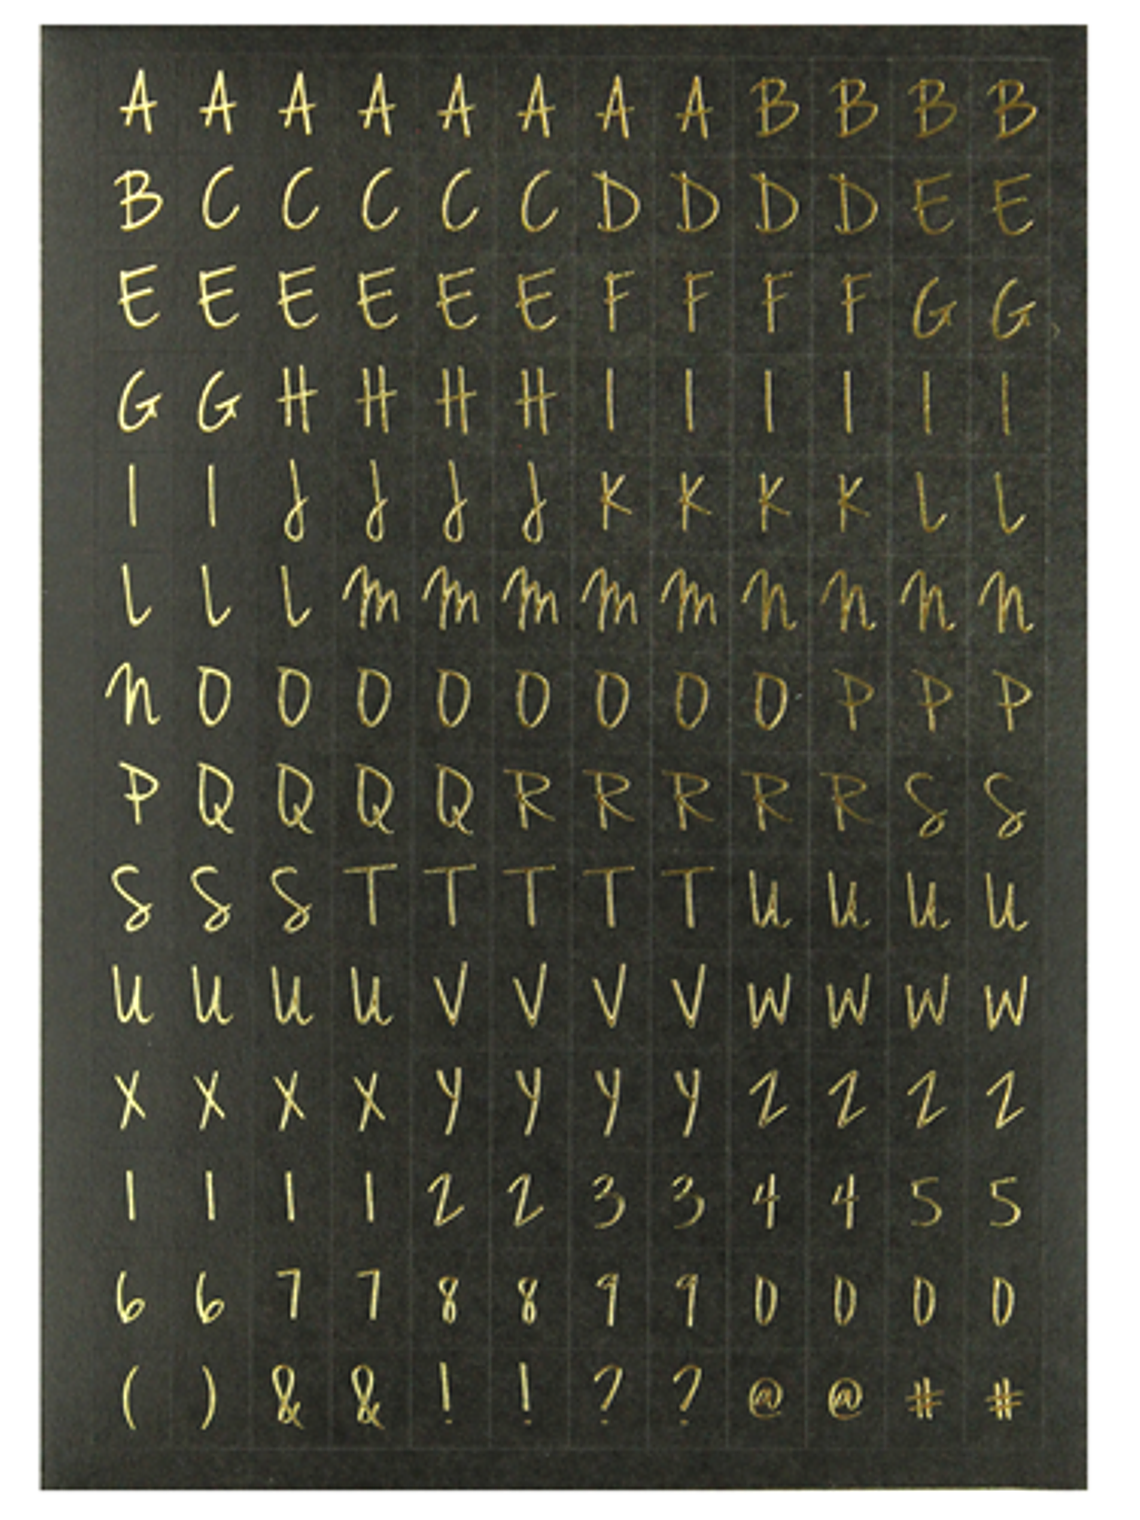 A A A A A A A A B B B B
B C C C C C D D D D E E
E E E E E E F F F F G G
G G H H H H I I I I I I
I I J J J J K K K K L L
L L L M M M M M N N N N
N O O O O O O O O P P P
P Q Q Q Q R R R R R S S
S S S T T T T T U U U U
U U U U V V V V W W W W
X X X X Y Y Y Y Z Z Z Z
1 1 1 1 2 2 3 3 4 4 5 5
6 6 7 7 8 8 9 9 0 0 0 0
( ) & & ! ! ? ? @ @ # #